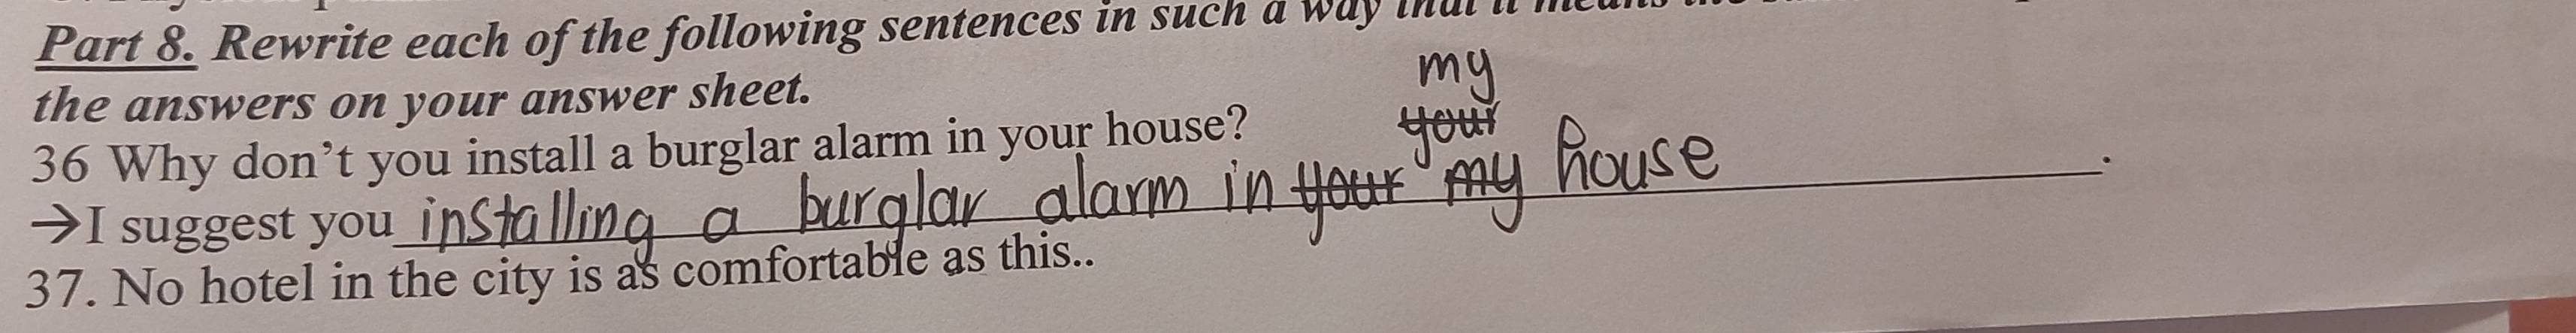 Part 8. Rewrite each of the following sentences in such a way that it means the
the answers on your answer sheet.
my
your
36 Why don't you install a burglar alarm in your house?
→I suggest you installing a burglar alarm in your my house.
37. No hotel in the city is as comfortable as this..